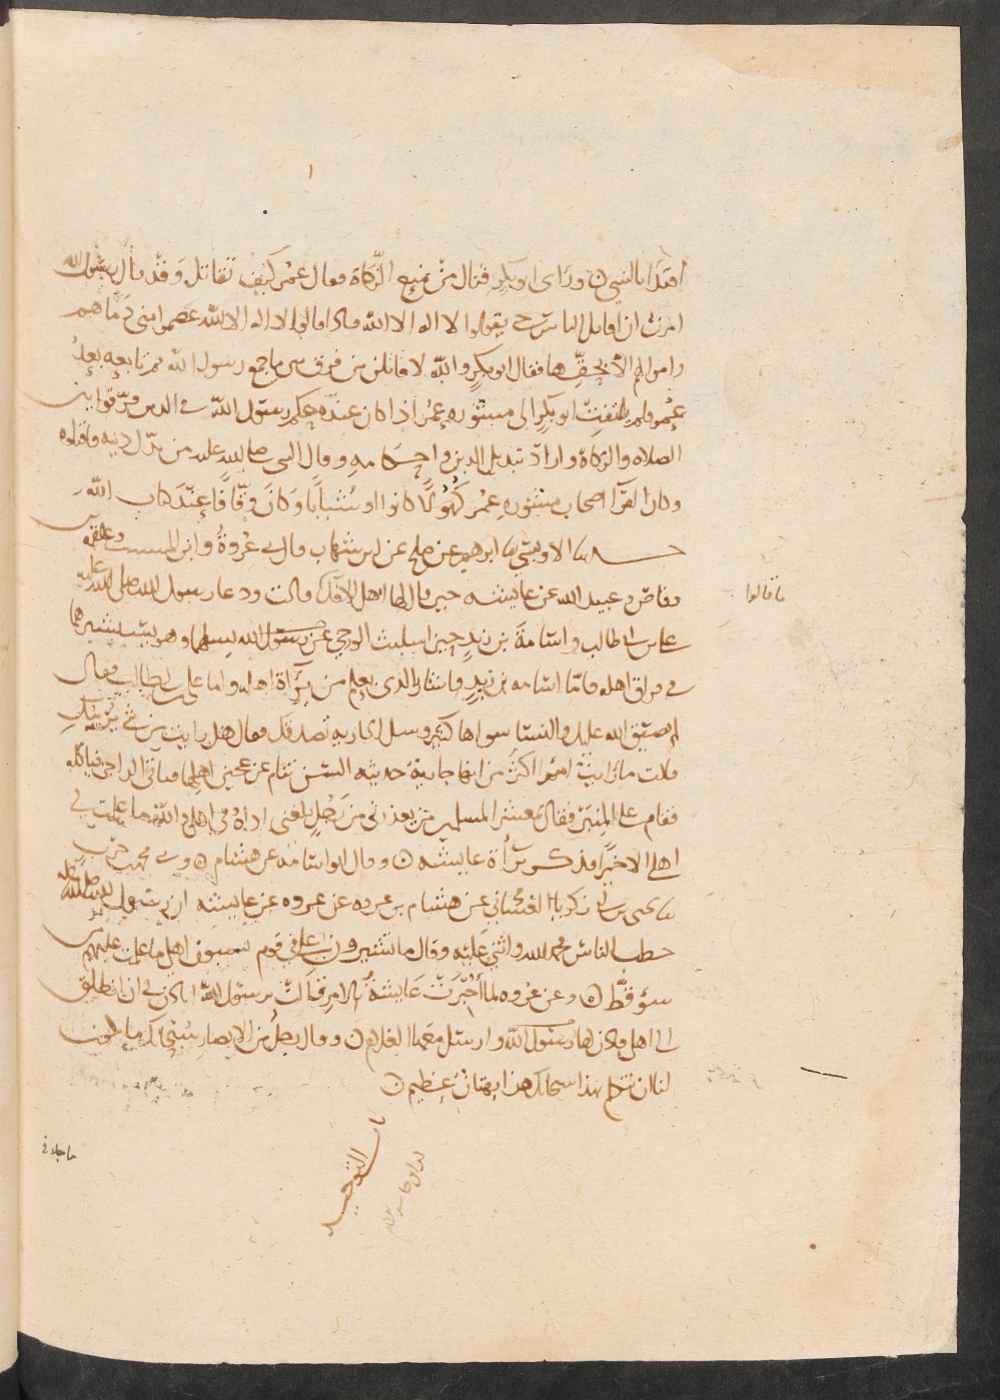 اقتدا بالنبي ورأى ابو بكر قتال من منع الزكاة فقال عمر كيف تقاتل وقد قال رسول الله
امرت ان اقاتل الناس حتى يقولوا لا اله الا الله فاذا قالوا لا اله الا الله عصموا مني دماهم
واموالهم الا بحقها فقال ابو بكر والله لاقاتلن من فرق بين ما جمع رسول الله ثم تابعه بعد
عمر فلم يلتفت ابو بكر الى مشوره عمر اذ كان عنده حكم رسول الله في الذين فرقوا بين
الصلاه والزكاة وارادوا تبديل الدين واحكامه وقال النبي صلى الله عليه من بدل دينه فاقتلوه
وكان القرا اصحاب مشوره عمر كهولا كانوا او شبابا وكان وقافا عند كتاب الله
حدثنا الاويسي نا ابرهيم عن صلح عن ابن شهاب قال ني عروة وابن المسيب وعلقمه بن
وقاص وعبيد الله عن عايشه حين قال لها اهل الافك قالت ودعا رسول الله صلى الله عليه
علي بن ابي طالب واسامة بن زيد حين استلبث الوحي يسلهما وهو يستشيرهما
في فراق اهله فاما اسامه بن زيد فاشار بالذي يعلم من براة اهله واما علي بن ابي طالب فقال
لم يضيق الله عليك والنسا سواها كثير وسل الجاريه تصدقك فقال هل رايت من شي يريبك
قالت ما رايت امرا اكثر من انها جارية حديثه السن تنام عن عجين اهلها فياتي الداجن فياكله
فقام على المنبر فقال يمعشر المسلمين من يعذرني من رجل بلغني اذاه في اهلي والله ما علمت في
اهلي الا خيرا فذكر براة عايشه وقال ابو اسامة عن هشام وني محمد بن حرب
نا يحيى بن ابي زكريا الغساني عن هشام بن عروه عن عروه عن عايشه ان رسول الله صلى الله عليه
خطب الناس فحمد الله واثنى عليه وقال ما تشيرون علي في قوم يسبون اهلي ما علمت عليهم من
سؤ قط وعن عروه لما أخبرت عايشة بالامر قالت يرسول الله اتاذن لي ان انطلق
الى اهلي فاذن لها رسول الله وارسل معها الغلام وقال رجل من الانصار سبحانك ما يكون
لنا ان نتكلم بهذا سبحانك هذا بهتان عظيم
ما قالوا
ما جا في
كتاب التوحيد